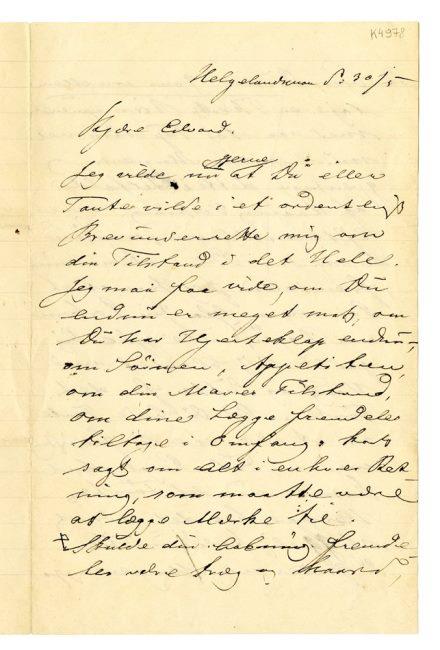 K4978
Helgelandsmoen d: 30/5
Kjære Edvard.
Jeg vilde nu gerne at Du eller
Tante vilde i et ordentligt
Brev underrette mig om
din Tilstand i det Hele.
Jeg maa faa vide, om Du
endnu er meget mat, om
Du har Hjerteklap endnu,
om Sövnen, Appetiten,
om din Maves Tilstand,
om dine Lægge fremdeles
tiltage i Omfang, kort
sagt om alt i enhver Ret
ning, som maatte være
at lægge Mærke til.
Skulde din fremde
les være træg og haard,